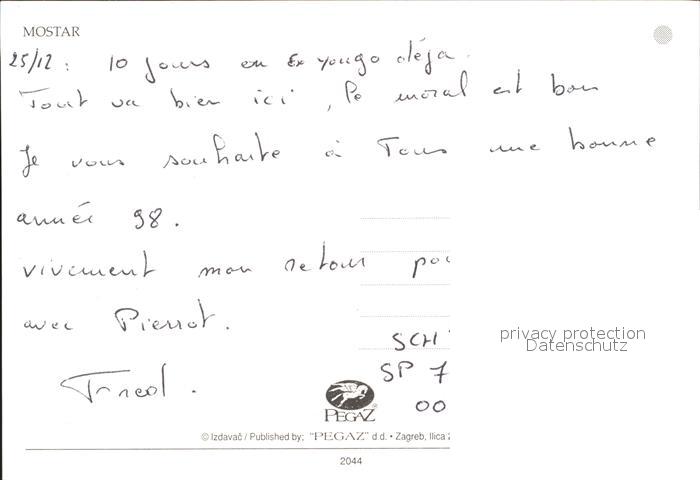 MOSTAR
25/12 : 10 jours en Ex yougo déja.
Tout va bien ici, le moral est bon
Je vous souhaite à Tous une bonne
année 98.
vivement mon retour
avec Pierrot.
privacy protection
Datenschutz
SCH
SP 7
00
Fred.
PEGAZ
© Izdavač / Published by; "PEGAZ" d.d. • Zagreb, Ilica
2044